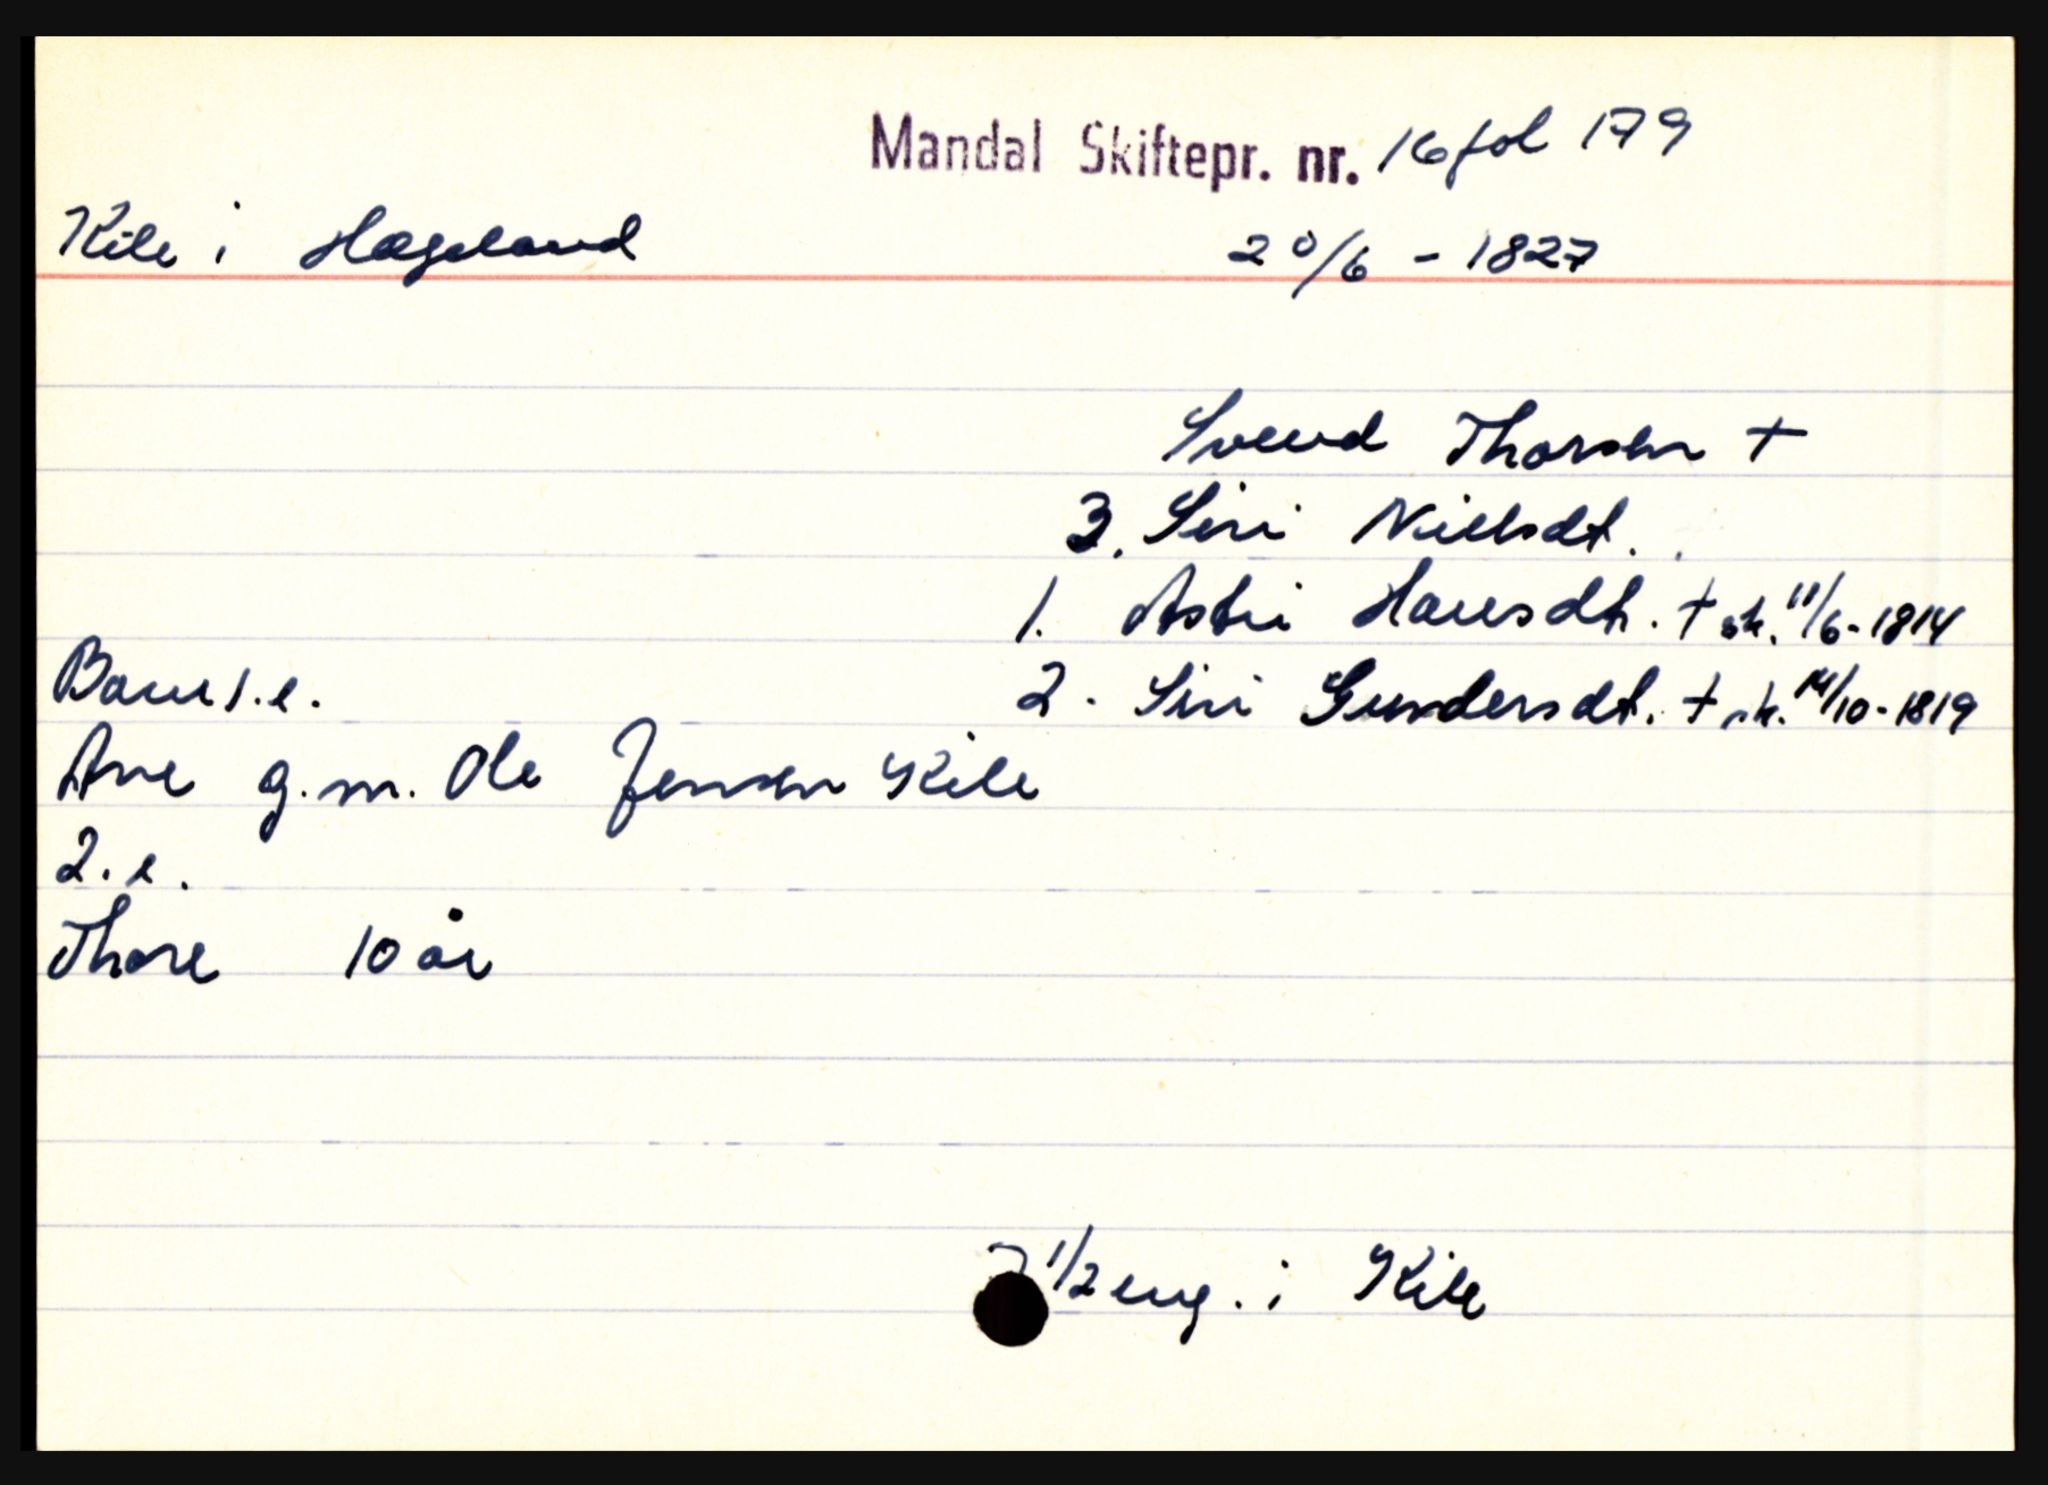 Mandal Skiftepr. nr. 16 fol 179
Kile i Hægeland 20/6 - 1827
Svend Thorsen +
3. Siri Nielsdt.
1. Astri Hansdt. + sk. 11/6-1814
Barn 1.e. 2. Siri Gundersdt. + sk. 14/10-1819
Ane g.m. Ole Jensen Kile
2.e.
Thore 10 år
1/2 eng. i Kile